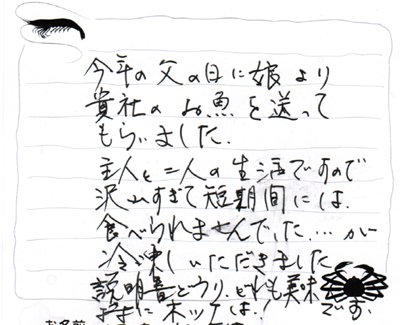 今年の父の日に娘より
貴社のお魚を送って
もらいました.
主人と二人の生活ですので
沢山すぎて短期間には.
食べられませんでした…が
冷凍しいただきました
説明書どうり.どれも美味
です.
にホッケは.